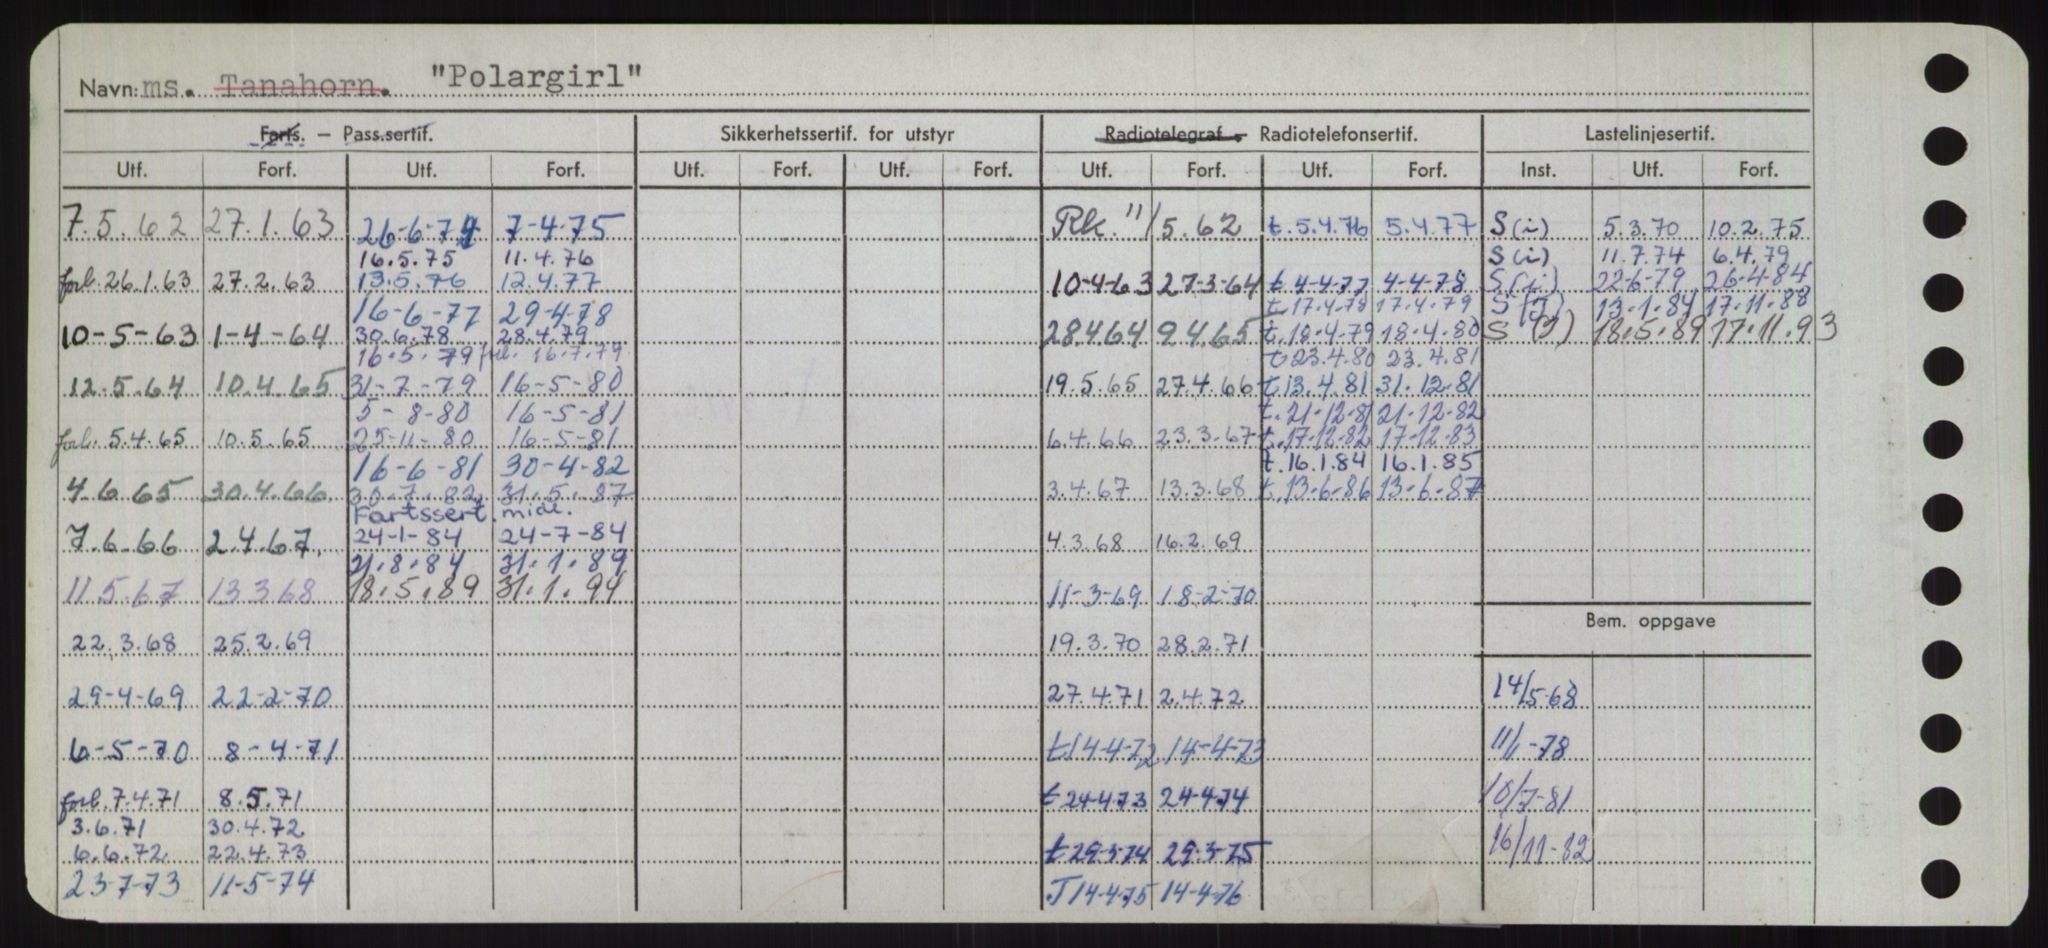 Navn: ms. Tanahorn. "Polargirl"
Farts. - Pass.sertif. Sikkerhetssertif. for utstyr Radiotelegraf - Radiotelefonsertif. Lastelinjesertif.
Utf. Forf. Utf. Forf. Utf. Forf. Utf. Forf. Utf. Forf. Utf. Forf. Inst. Utf. Forf.
7.5.62 27.1.63 26-6-74 7-4-75 Rk. 11/5.62 t. 5.4.76 5.4.77 S(i) 5.3.70 10.2.75
16.5.75 11.4.76 S(i) 11.7.74 6.4.79
forl. 26.1.63 27.2.63 13.5.76 12.4.77 10-4-63 27-3-64 t 4-4-77 4-4-78 S(i) 22-6-79 26-4-84
16-6-77 29-4-78 t 17.4.78 17.4.79 S(J) 13.1.84 17.11.88
10-5-63 1-4-64 30.6.78 28.4.79 28.4.64 9.4.65 t. 18.4.79 18.4.80 S (J) 18.5.89 17.11.93
16.5.79 forl. 16.7.79 t 23.4.80 23.4.81
12.5.64 10.4.65 31-7-79 16-5-80 19.5.65 27.4.66 t. 13.4.81 31.12.81
5-8-80 16-5-81 t. 21.12.81 21.12.82
forl. 5.4.65 10.5.65 25-11-80 16-5-81 6.4.66 23.3.67 t. 17.12.82 17.12.83
16-6-81 30-4-82 t. 16.1.84 16.1.85
4.6.65 30.4.66 30.7.82 31.5.87 3.4.67 13.3.68 t. 13.6.86 13.6.87
Fartssert. midl.
7.6.66 2.4.67. 24-1-84 24-7-84 4.3.68 16.2.69
21.8.84 31.1.89
11.5.67 13.3.68 18.5.89 31.1.94 11-3-69 18-2-70
Bem. oppgave
22.3.68 25.2.69 19.3.70 28.2.71
29-4-69 22-2-70 27.4.71 2.4.72 14/5-68
6-5-70 8-4-71 t 14-4-72 14-4-73 11/1-78
forl. 7.4.71 8.5.71 t 24-4-73 24-4-74 10/7-81
3.6.71 30.4.72
6.6.72 22.4.73 t 29-3-74 29-3-75 16/11-82
23-7-73 11-5-74 J 14-4-75 14-4-76